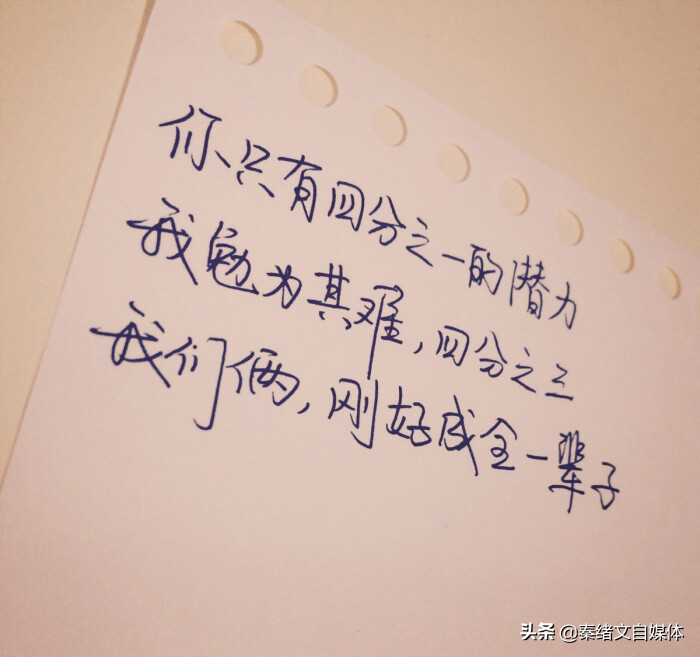 你、只有四分之一的潜力
我勉为其难，四分之三
我们俩，刚好成全一辈子
头条 @秦绪文自媒体